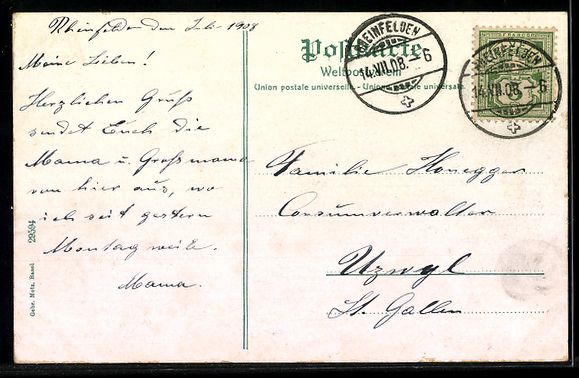 Rheinfelden den Juli 1908
Meine Lieben!
Herzlichen Gruss
sendet Euch die
Mama u. Grossmama
von hier aus, wo
ich seit gestern
Montag weile.
Mama.
29594
Gebr. Metz, Basel
Postkarte
Weltpostverein
Union postale universelle. - Unione postale universale.
RHEINFELDEN
14.VII.08.-6
FRANCO
RHEINFELDEN
14.VII.08.-6
5
Familie Honegger
Consumverwalter
Uzwyl
St. Gallen